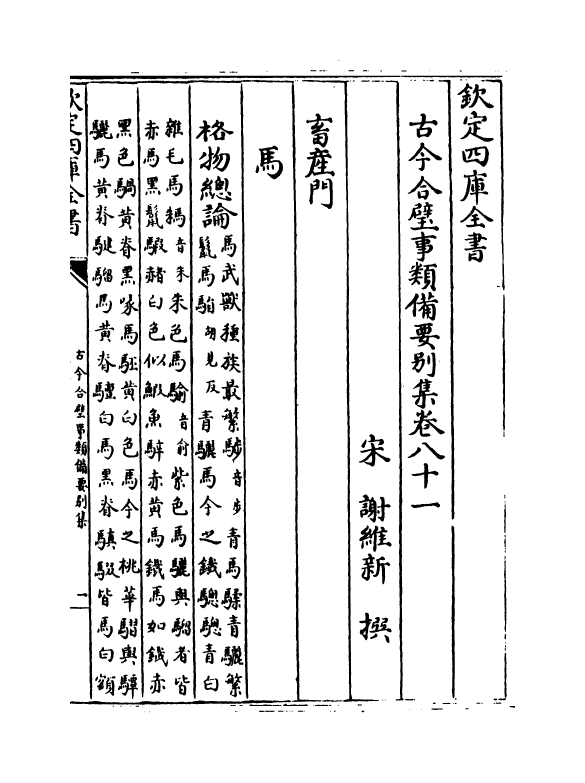 欽定四庫全書
古今合璧事類備要别集卷八十一
宋 謝維新 撰
畜産門
馬
格物總論
馬武獸種族最繁䮛音步青馬騥青驪繁
鬣馬駽胡見反青驪馬今之鐵驄驄青白
雜毛馬䮌音朱朱色馬騟音俞紫色馬驪與騮者皆
赤馬黑鬣騢赭白色似鰕魚騂赤黄馬鐵馬如鐵赤
黑色騧黄脊黑喙馬駓黄白色馬今之桃華騽與驔
驪馬黄脊騝騮馬黄脊驙白馬黑脊騏馰皆馬白額
欽定四庫全書
古今合璧事類備要别集
一